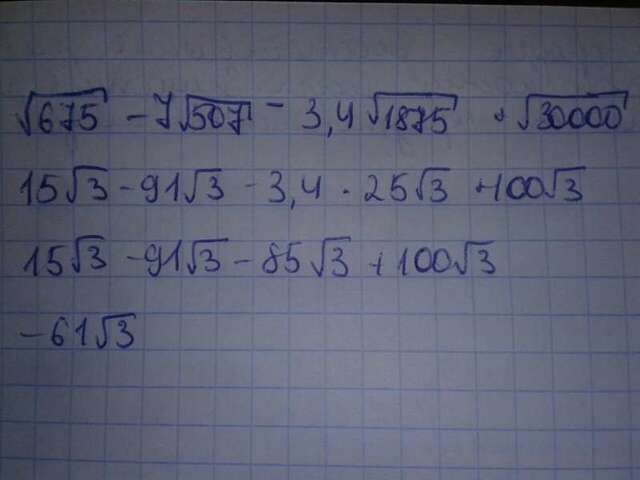 √675 - 7√507 - 3,4√1875 + √30000
15√3 - 91√3 - 3,4 · 25√3 + 100√3
15√3 - 91√3 - 85√3 + 100√3
- 61√3